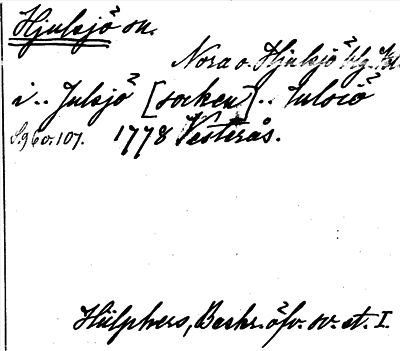 Hjulsjö sn.
Nora o. Hjulsjö
i .. Julsjö [socken] .. Julsiö
S. 96 o. 107. 1778 Vesterås.
Hülphers, Beskr. öfv. sv. st. I.